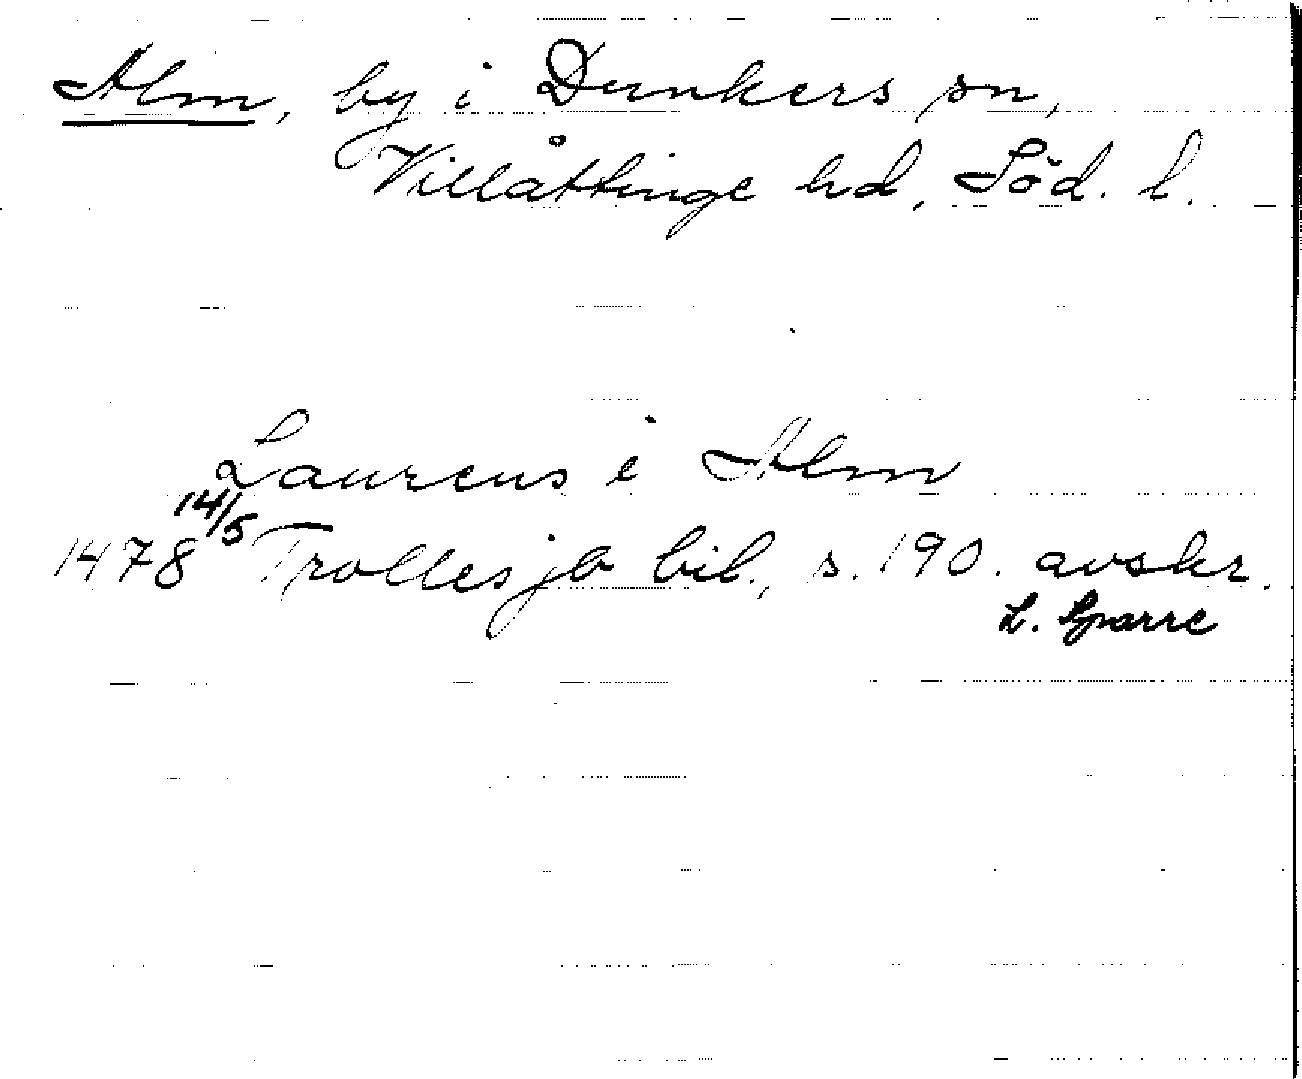 Alm, by i Dunkers sn,
Villåttinge hd, Söd. l.
Laurens i Alm
1478 14/5 Trolles jb bil., s. 190. avskr.
L. Sparre